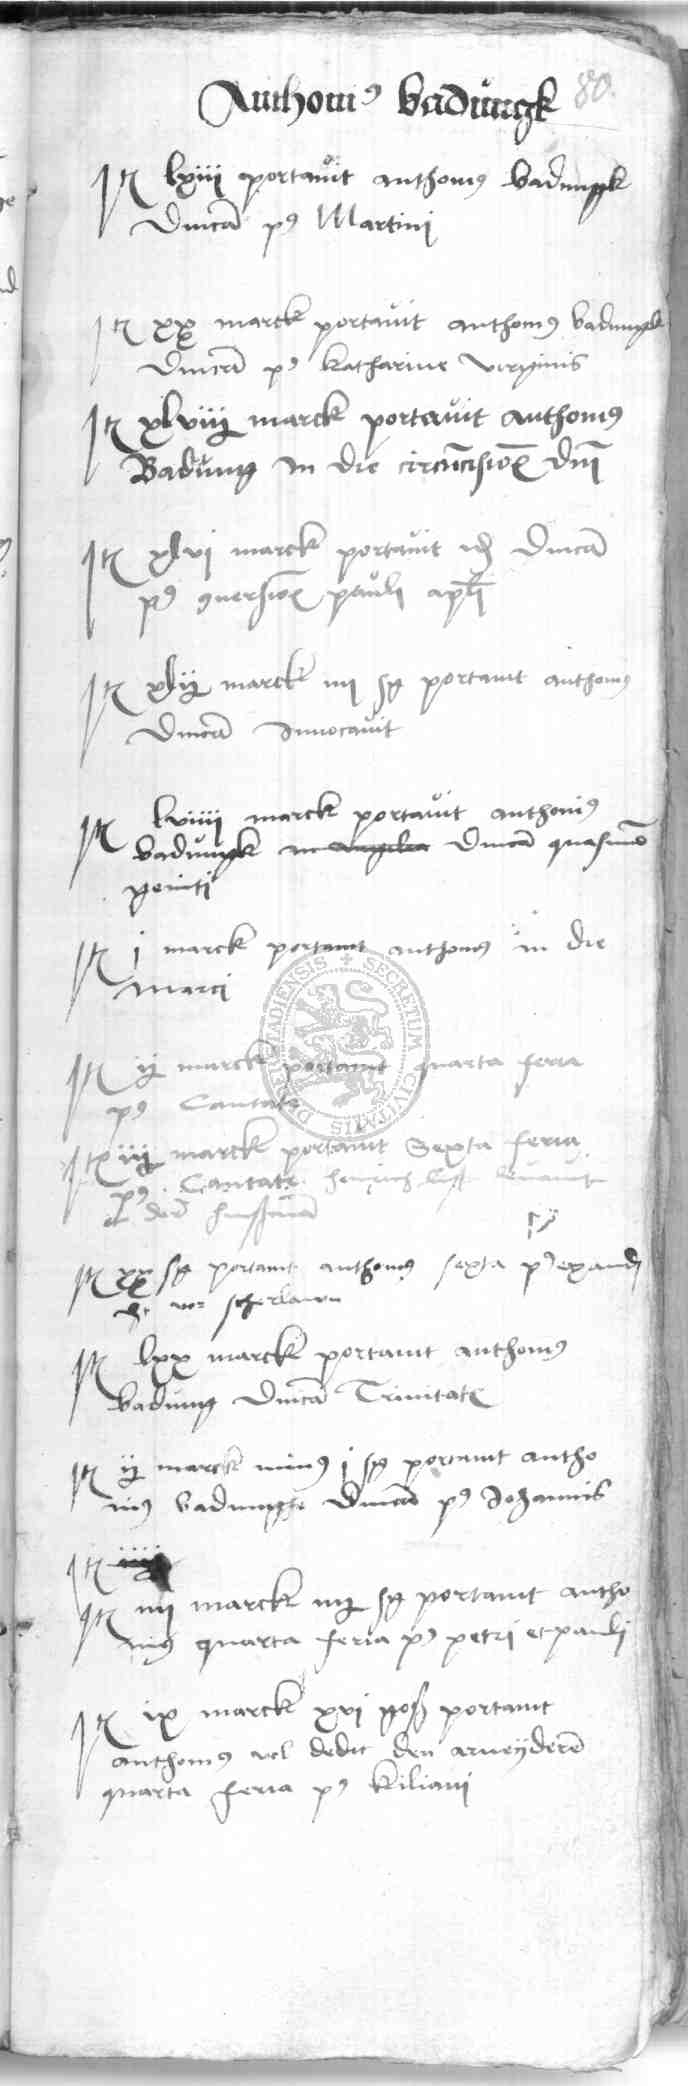 Anthoni9 badungk 80.
It lxiii portauit anthoni9 badungk
Dnica p9 Martini
It xx marck portauit anthoni9 badungk
Dnica p9 katharine virginis
It xlviij marck portauit anthoni9
Badung in die circucision dni
It xlvi marck portauit id Dnica
p9 9uersion pauli apli
It xlij marck iiii sg portauit anthoni9
Dnica Inuocauit
It lviiii marck portauit anthoni9
badungk in Dnica quasimo
geniti
It j marck portauit anthoni9 in die
Marci
It ij marck portauit quarta feria
p9 Cantate
It iij marck portauit Sexta feria
p9 Cantate leuauit
It xx sg portauit anthoni9 sexta p9 exaudi
vor
It lxx marck portauit anthoni9
badung Dnica Trinitatis
It ij marck min9 j sg portauit antho
ni9 badungk Dnica p9 Johannis
It iiij
It iiii marck iiij sg portauit antho
ni9 quarta feria p9 petri et pauli
It ix marck xvi gosz portauit
anthoni9 vel dedit den arueydere
quarta feria p9 kiliani
SECRETUM CIVITATIS DUDERSTADIENSIS